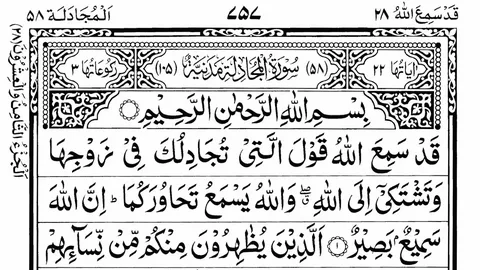 قَدْ سَمِعَ اللهُ ٢٨
٧٥٧
اَلْمُجَادَلَة ٥٨
اٰیَاتُهَا ٢٢
(٥٨) سُوْرَةُ الْمُجَادَلَةِ مَدَنِیَّةٌ (١٠٥)
رُكُوْعَاتُهَا ٣
بِسْمِ اللهِ الرَّحْمٰنِ الرَّحِیْمِ
قَدْ سَمِعَ اللهُ قَوْلَ الَّتِیْ تُجَادِلُكَ فِیْ زَوْجِهَا
وَتَشْتَكِیْۤ اِلَى اللهِ ۖۗ وَاللهُ یَسْمَعُ تَحَاوُرَكُمَا ؕ اِنَّ اللهَ
سَمِیْعٌۢ بَصِیْرٌ ﴿١﴾ اَلَّذِیْنَ یُظٰهِرُوْنَ مِنْكُمْ مِّنْ نِّسَآىِٕهِمْ
اَلْجُزْءُ الثَّامِنُ وَالْعِشْرُوْنَ (٢٨)